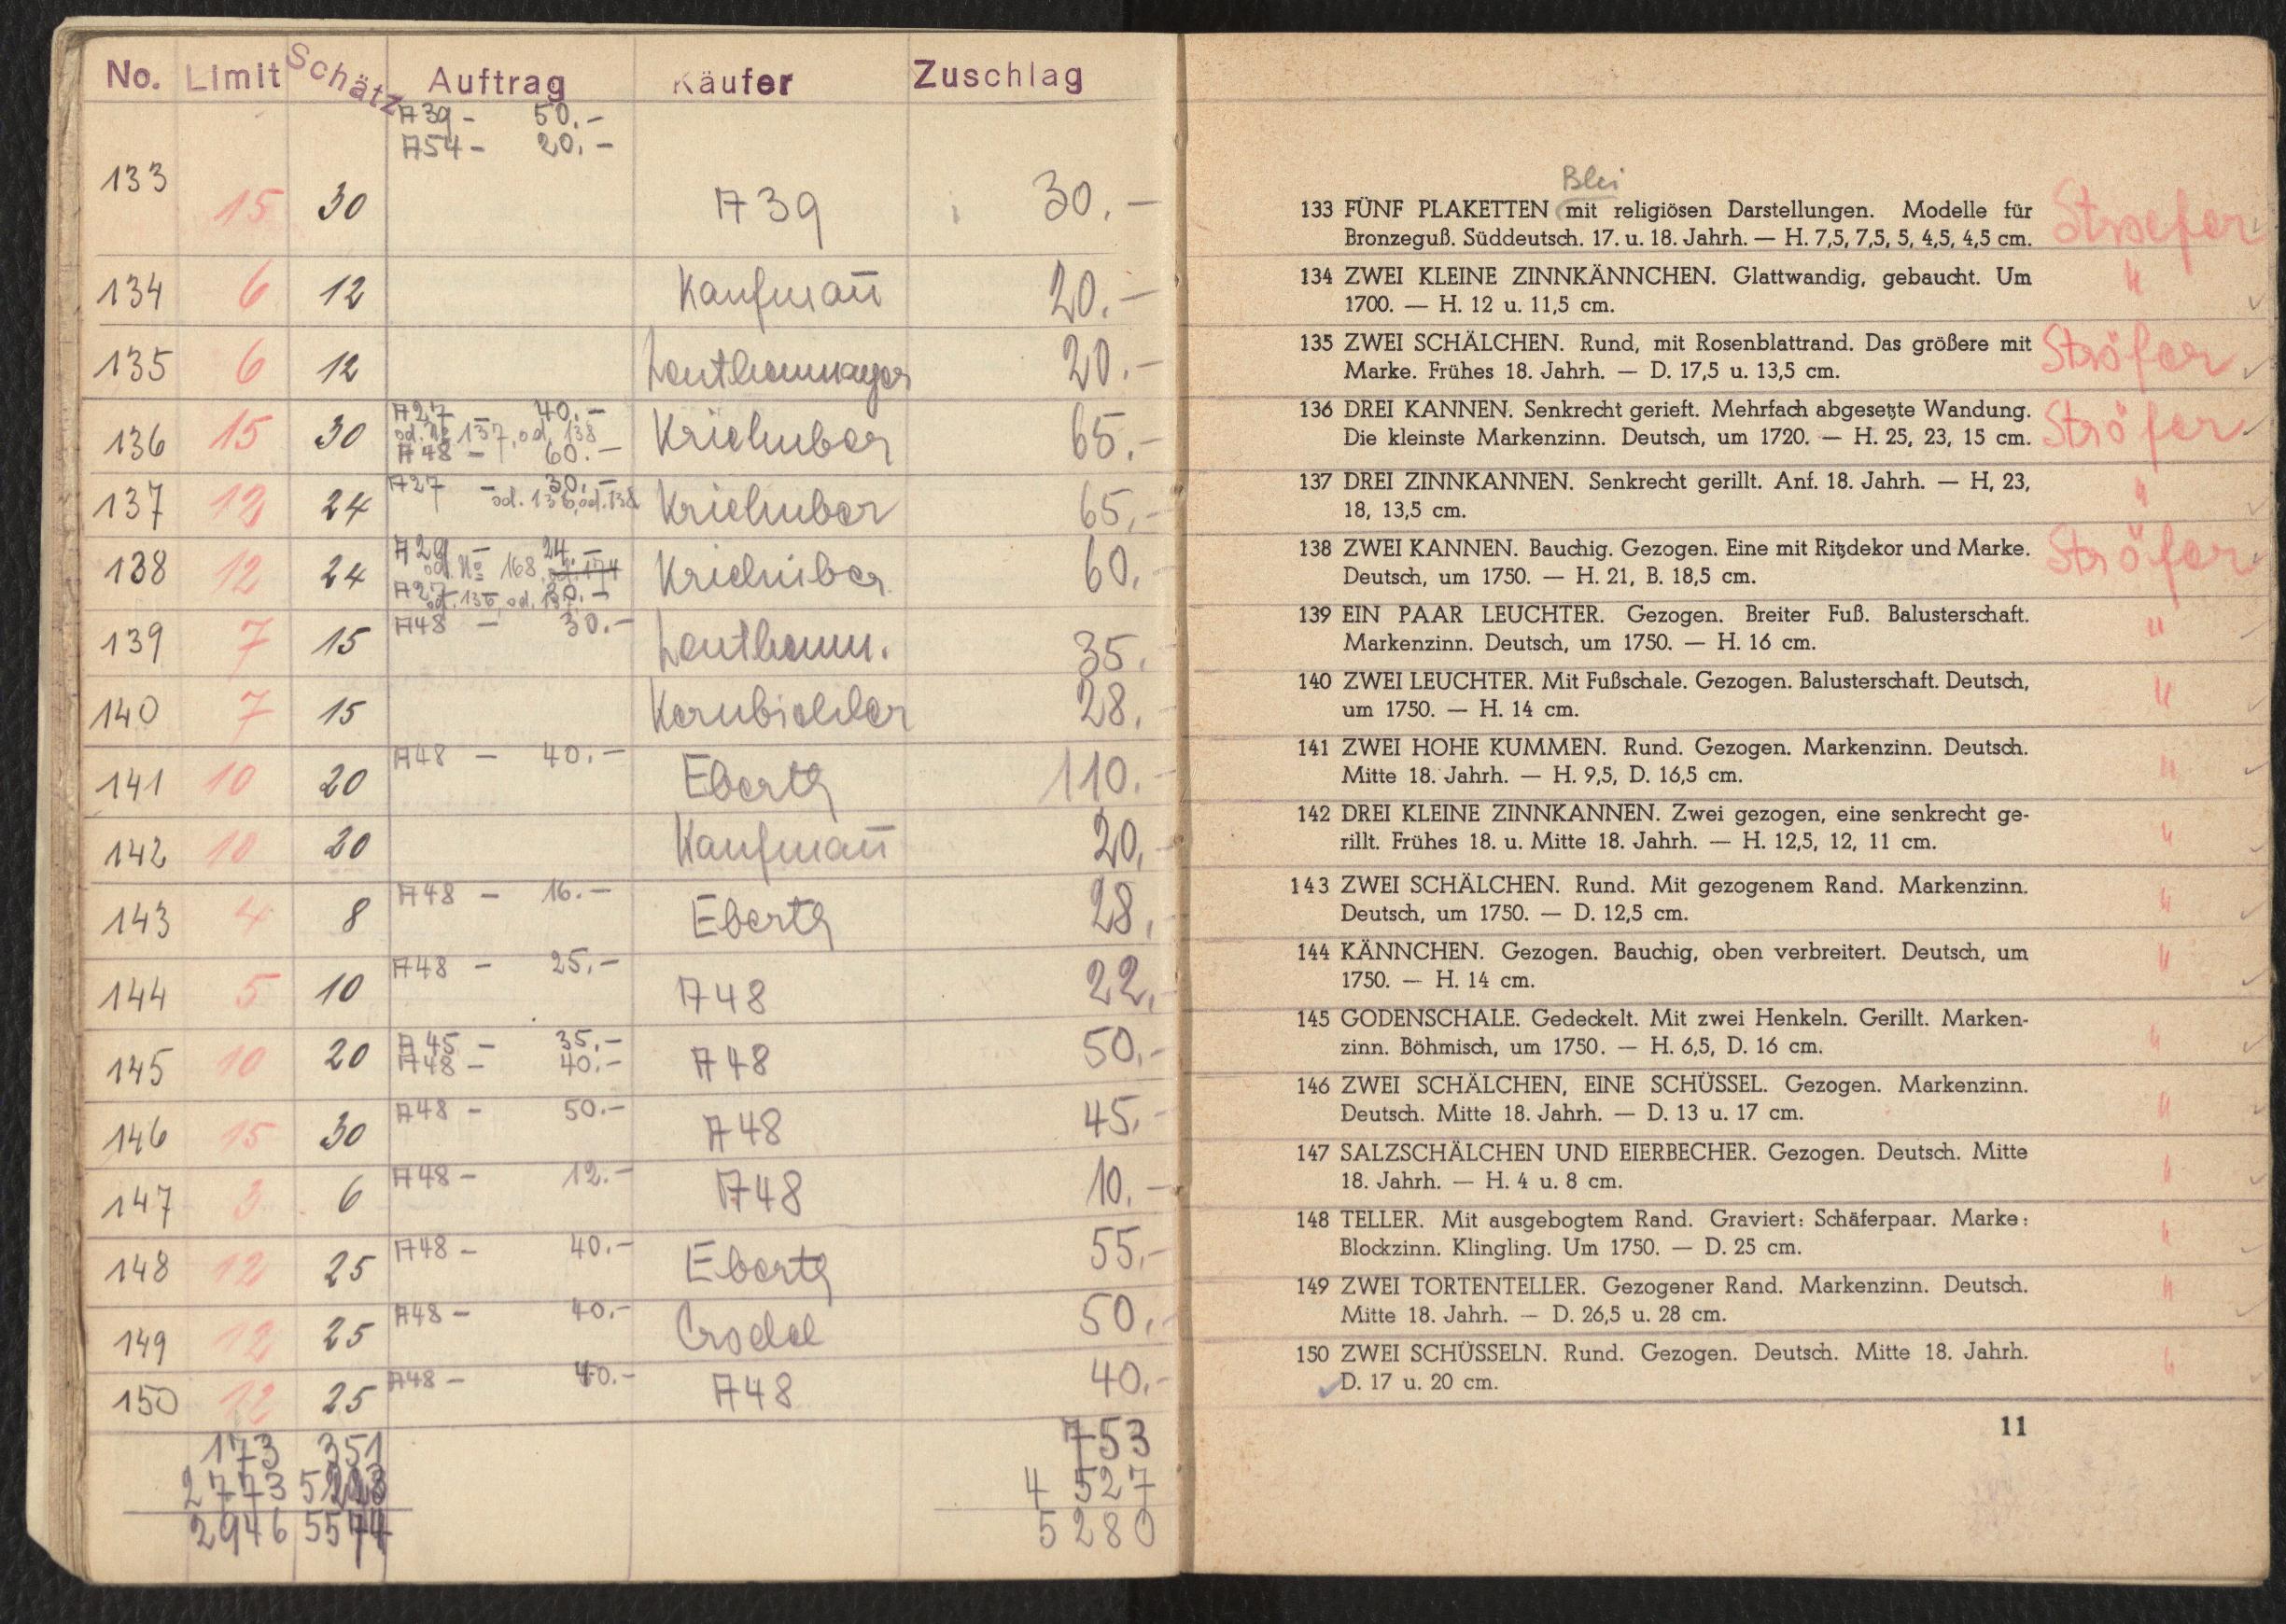 No. Limit Schätz Auftrag Käufer Zuschlag
A39 - 50.-
A54 - 20.-
133 15 30 A39 30.-
134 6 12 Kaufmañ 20.-
135 6 12 20.-
A27 40.-
od. No 137, od. 138
136 15 30 A48 - 60.- Kriehuber 65.-
A27 - 30.-
od. 136, od. 138
137 12 24 Kriehuber 65.-
A29 - 24.-
od. No 168, od. 174
138 12 24 A27 30.- Kriehuber 60.
od. 136, od. 137
A48 - 30.-
139 7 15 Lenthamm. 35.
140 7 15 Kernbichler 28.
A48 - 40.-
141 10 20 Eberth 110.-
142 10 20 Kaufmañ 20.-
A48 - 16.-
143 4 8 Eberth 28,
A48 - 25.-
144 5 10 A48 22,-
A45 - 35.-
145 10 20 A48 - 40.- A48 50.-
A48 - 50.-
146 15 30 A48 45.-
A48 - 12.-
147 3 6 A48 10.-
A48 - 40.-
148 12 25 Eberth 55.-
A48 - 40.-
149 12 25 50.-
A48 - 40.-
150 12 25 A48 40.-
173 351 753
2773 4 527
2946 5574 5280
Blei
133 FÜNF PLAKETTEN mit religiösen Darstellungen. Modelle für Stroefer
Bronzeguß. Süddeutsch. 17. u. 18. Jahrh. — H. 7,5, 7,5, 5, 4,5, 4,5 cm.
134 ZWEI KLEINE ZINNKÄNNCHEN. Glattwandig, gebaucht. Um "
1700. — H. 12 u. 11,5 cm.
135 ZWEI SCHÄLCHEN. Rund, mit Rosenblattrand. Das größere mit Ströfer
Marke. Frühes 18. Jahrh. — D. 17,5 u. 13,5 cm.
136 DREI KANNEN. Senkrecht gerieft. Mehrfach abgesetzte Wandung. Ströfer
Die kleinste Markenzinn. Deutsch, um 1720. — H. 25, 23, 15 cm.
137 DREI ZINNKANNEN. Senkrecht gerillt. Anf. 18. Jahrh. — H, 23, "
18, 13,5 cm.
138 ZWEI KANNEN. Bauchig. Gezogen. Eine mit Ritzdekor und Marke. Ströfer
Deutsch, um 1750. — H. 21, B. 18,5 cm.
139 EIN PAAR LEUCHTER. Gezogen. Breiter Fuß. Balusterschaft. "
Markenzinn. Deutsch, um 1750. — H. 16 cm.
140 ZWEI LEUCHTER. Mit Fußschale. Gezogen. Balusterschaft. Deutsch, "
um 1750. — H. 14 cm.
141 ZWEI HOHE KUMMEN. Rund. Gezogen. Markenzinn. Deutsch. "
Mitte 18. Jahrh. — H. 9,5, D. 16,5 cm.
142 DREI KLEINE ZINNKANNEN. Zwei gezogen, eine senkrecht ge- "
rillt. Frühes 18. u. Mitte 18. Jahrh. — H. 12,5, 12, 11 cm.
143 ZWEI SCHÄLCHEN. Rund. Mit gezogenem Rand. Markenzinn. "
Deutsch, um 1750. — D. 12,5 cm.
144 KÄNNCHEN. Gezogen. Bauchig, oben verbreitert. Deutsch, um "
1750. — H. 14 cm.
145 GODENSCHALE. Gedeckelt. Mit zwei Henkeln. Gerillt. Marken- "
zinn. Böhmisch, um 1750. — H. 6,5, D. 16 cm.
146 ZWEI SCHÄLCHEN, EINE SCHÜSSEL. Gezogen. Markenzinn. "
Deutsch. Mitte 18. Jahrh. — D. 13 u. 17 cm.
147 SALZSCHÄLCHEN UND EIERBECHER. Gezogen. Deutsch. Mitte "
18. Jahrh. — H. 4 u. 8 cm.
148 TELLER. Mit ausgebogtem Rand. Graviert: Schäferpaar. Marke: "
Blockzinn. Klingling. Um 1750. — D. 25 cm.
149 ZWEI TORTENTELLER. Gezogener Rand. Markenzinn. Deutsch. "
Mitte 18. Jahrh. — D. 26,5 u. 28 cm.
150 ZWEI SCHÜSSELN. Rund. Gezogen. Deutsch. Mitte 18. Jahrh. "
D. 17 u. 20 cm.
11